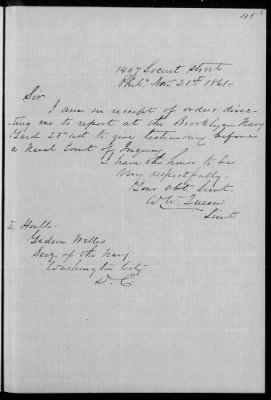 1407 Locust Street
Phila Nov. 21st 1861
Sir
I am in receipt of orders direc-
ting me to report at the Brooklyn Navy
Yard 23d inst to give testimony before
a Naval Court of Inquiry
I have the honor to be
Very respectfully
Your Obt Servt
W. W. Queen
Lieut
To Honble
Gideon Welles
Secy of the Navy
Washington City
D. C